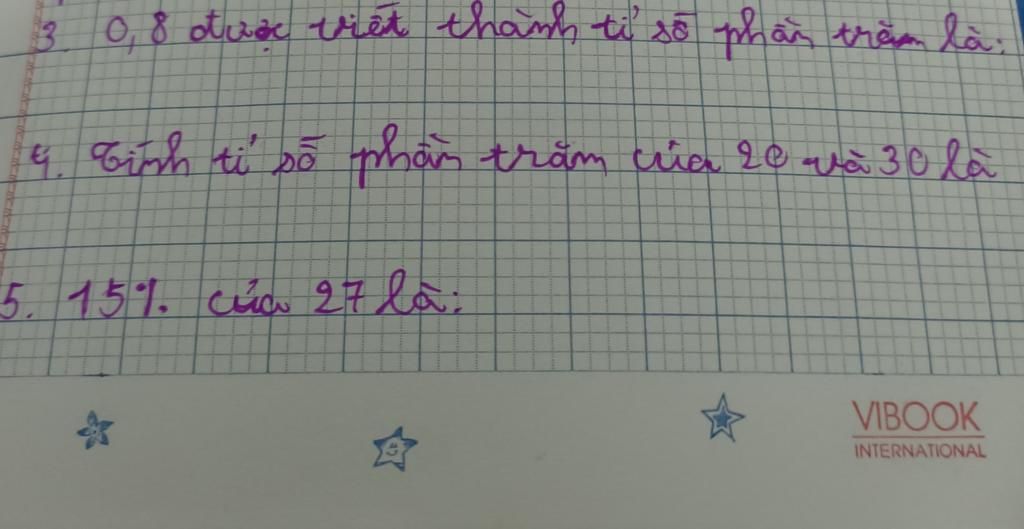 3. 0,8 được viết thành tỉ số phần trăm là:
4. Tính tỉ số phần trăm của 20 và 30 là
5. 15% của 27 là:
VIBOOK
INTERNATIONAL